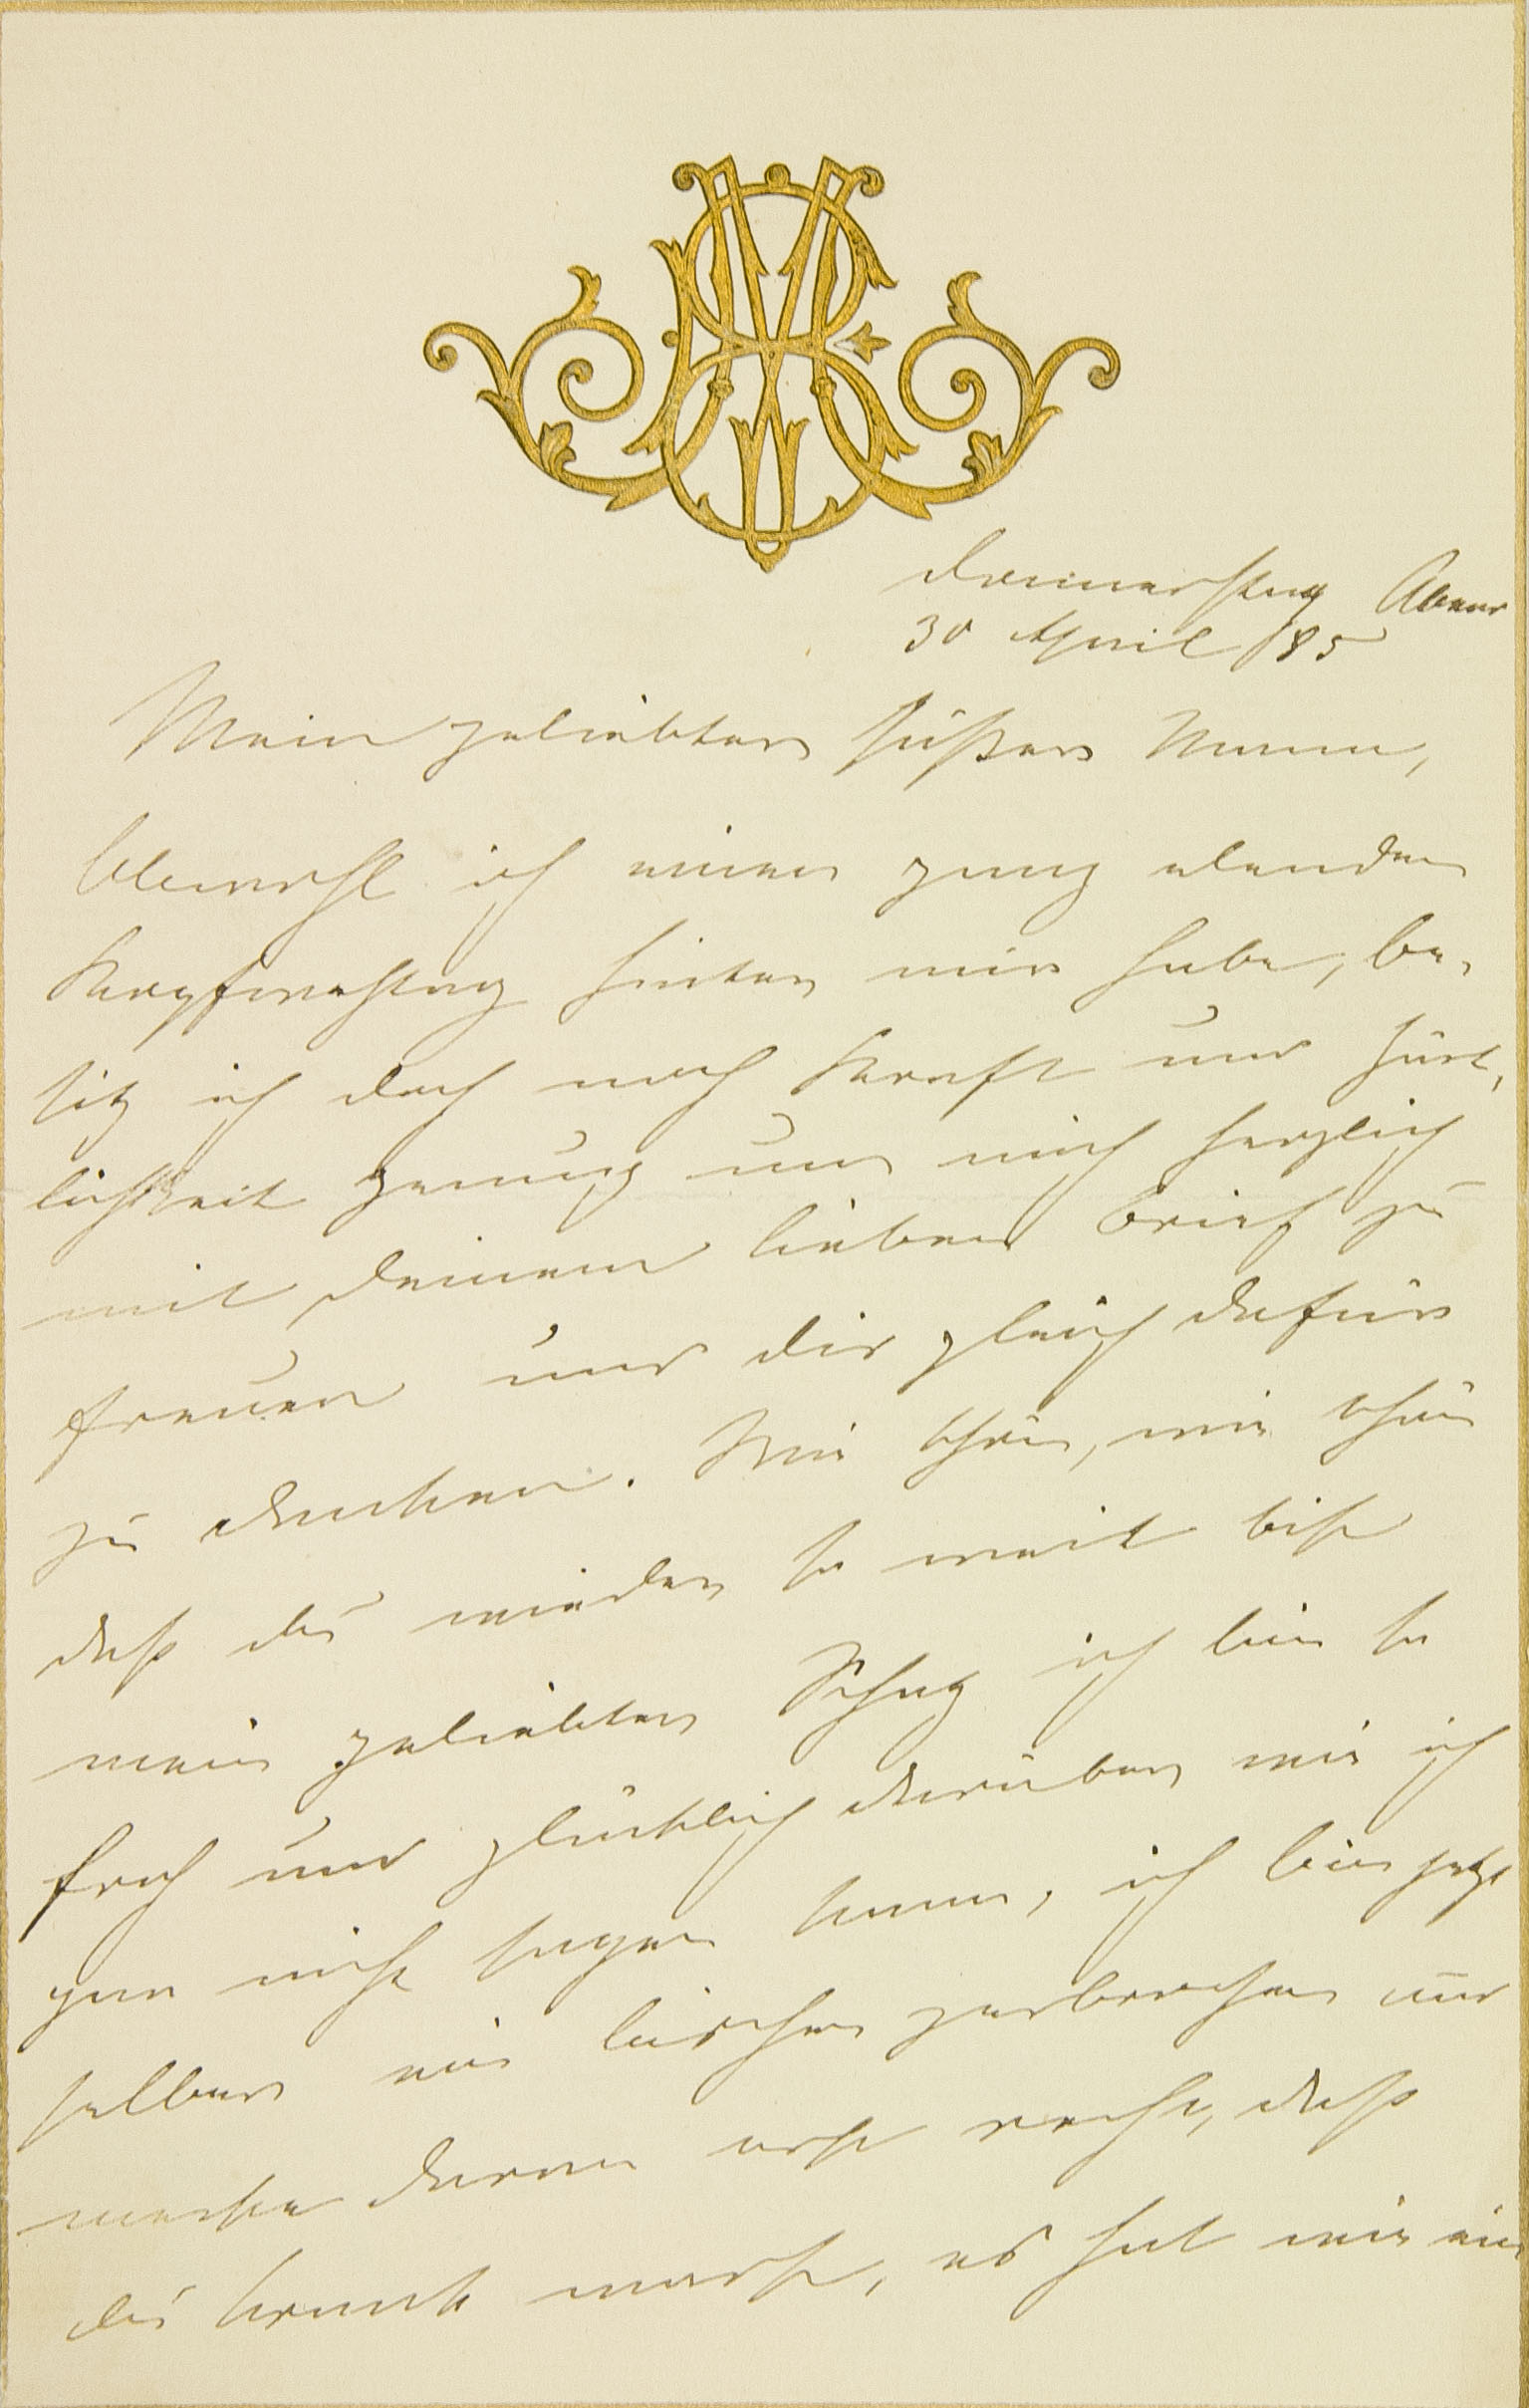 Donnerstag Abend
30 April 85
Mein geliebter süßer Mann,
Obwohl ich einen ganz elenden
Kopfwehtag hinter mir habe, be-
sitz ich doch noch Kraft und Zärt-
lichkeit genug um mich herzlich
mit deinem lieben Brief zu
freuen und dir gleich dafür
zu danken. Wie schön, wie schön
daß du wieder so weit bist
mein geliebter Schatz ich bin so
froh und glücklich darüber wie ich
gar nicht sagen kann, ich bin jetzt
selber ein bischen zerbrochen und
merke daran erst recht, daß
du krank warst, es hat mir ein